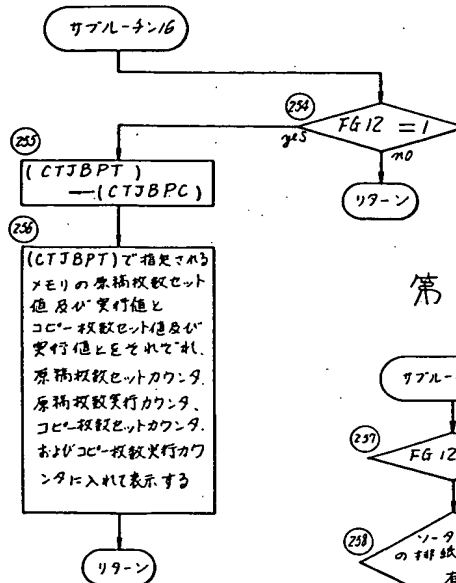 サブルーチン16
254
FG12 = 1
yes
no
リターン
255
(CTJBPT)
―(CTJBPC)
256
(CTJBPT)で指定される
メモリの原稿枚数セット
値及び実行値と
コピー枚数セット値及び
実行値とをそれぞれ、
原稿枚数セットカウンタ、
原稿枚数実行カウンタ、
コピー枚数セットカウンタ、
およびコピー枚数実行カウ
ンタに入れて表示する
リターン
第
サブルー
257
FG12
258
ソータ
の排紙